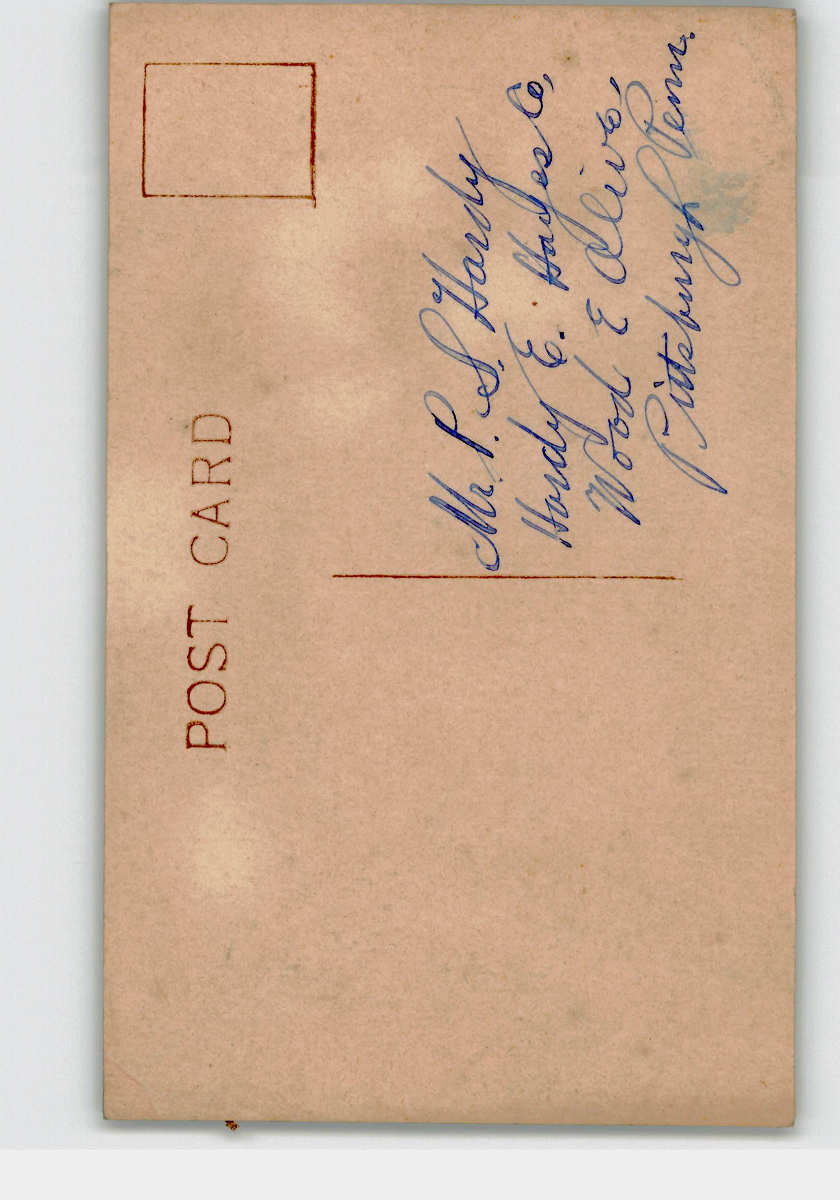 POST CARD
Mr. P. S. Hardy
Hardy & Hayes Co,
Wood & Olive,
Pittsburgh Penn.